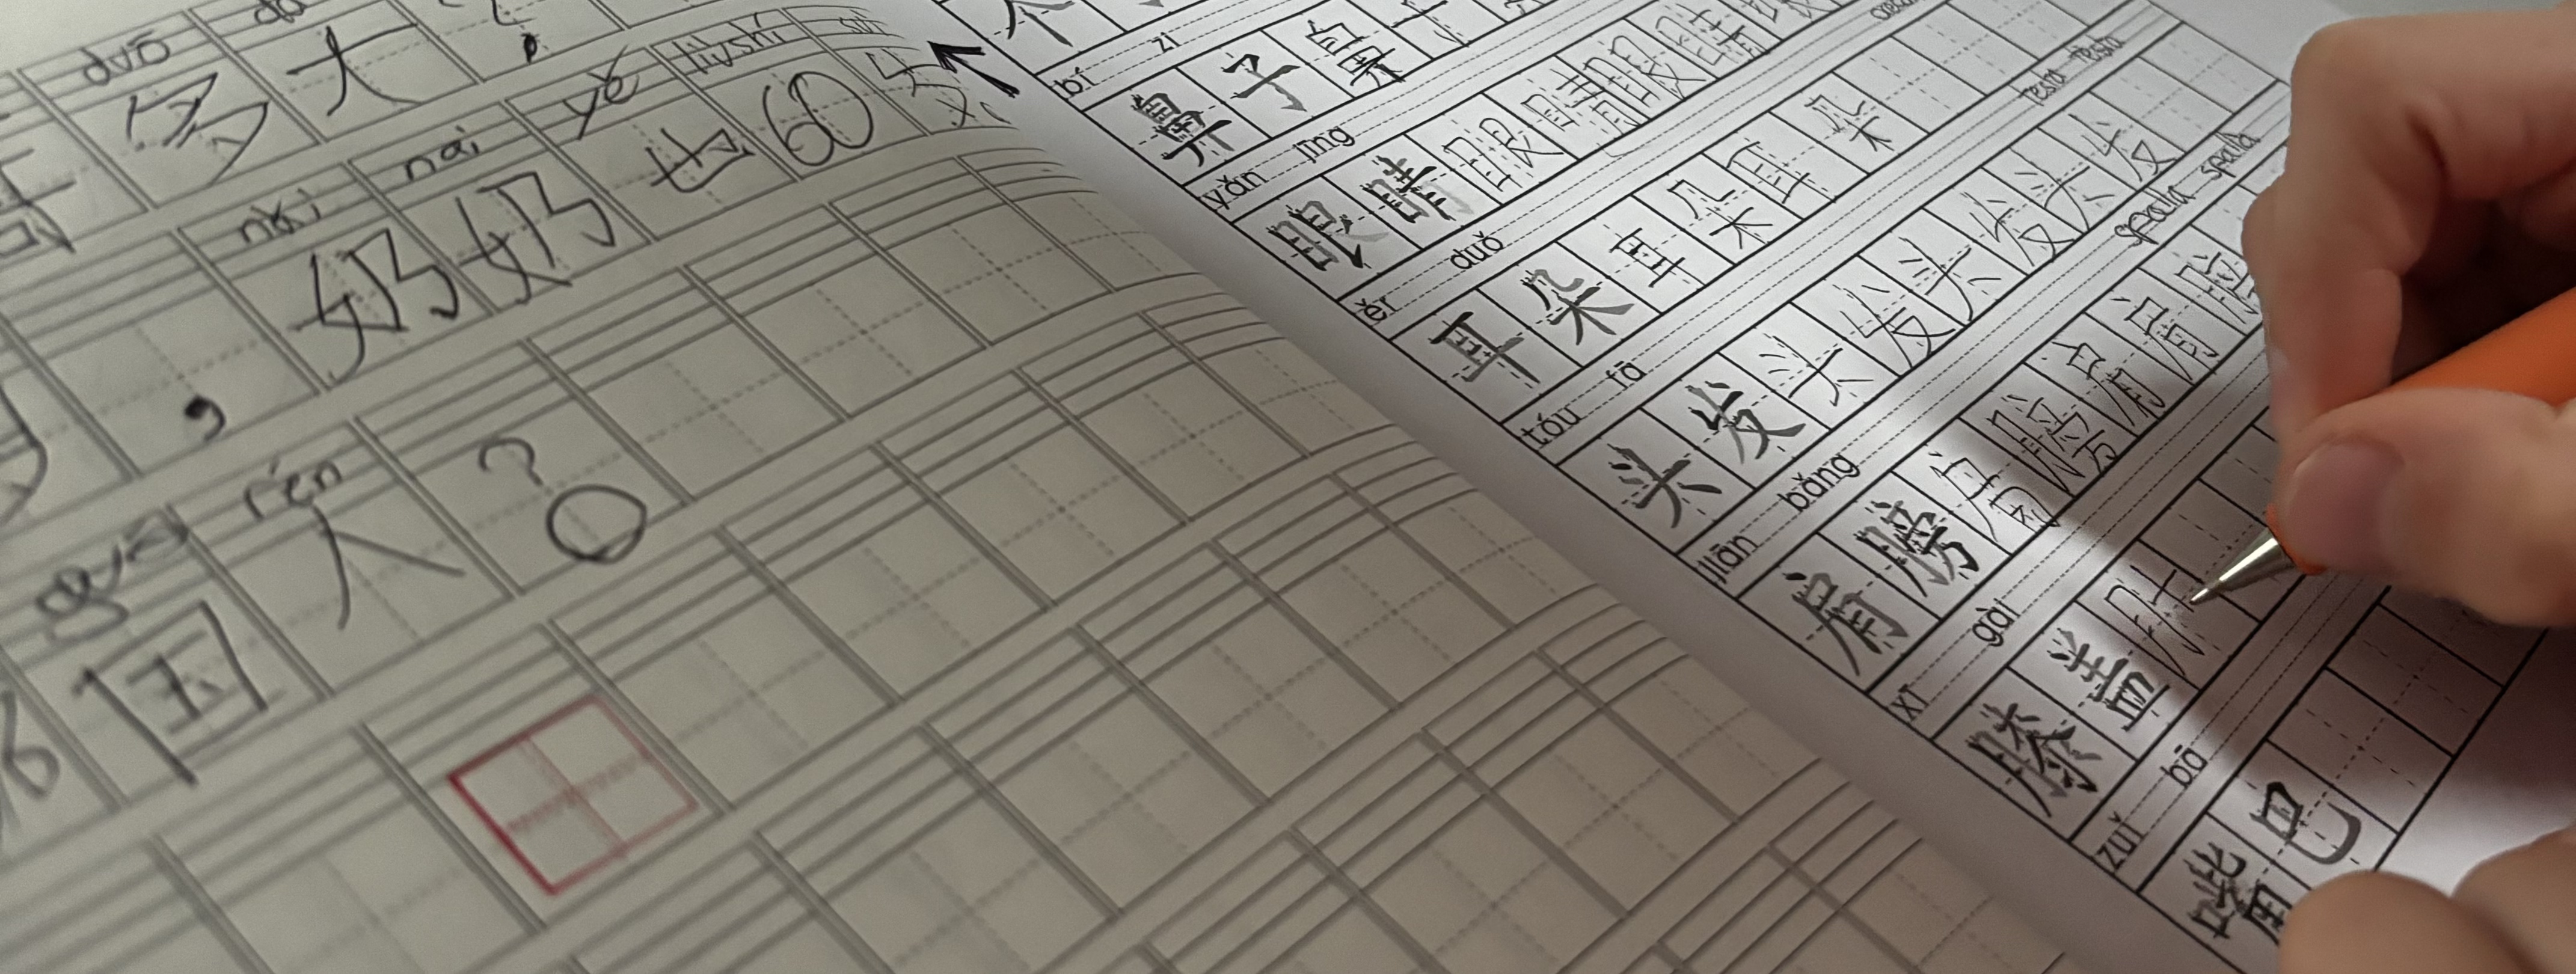 duō dà
多大?
nǎi nai yě liùshí
,奶奶也60岁
guó rén
国人?
bí zi
鼻子鼻子
yǎn jīng
眼睛眼睛眼睛
ěr duǒ
耳朵耳朵耳朵
testa testa
tóu fā
头发头发头发头发
spalla spalla
jiān bǎng
肩膀肩膀肩肩膀
xī gài
膝盖
zuǐ bā
嘴巴